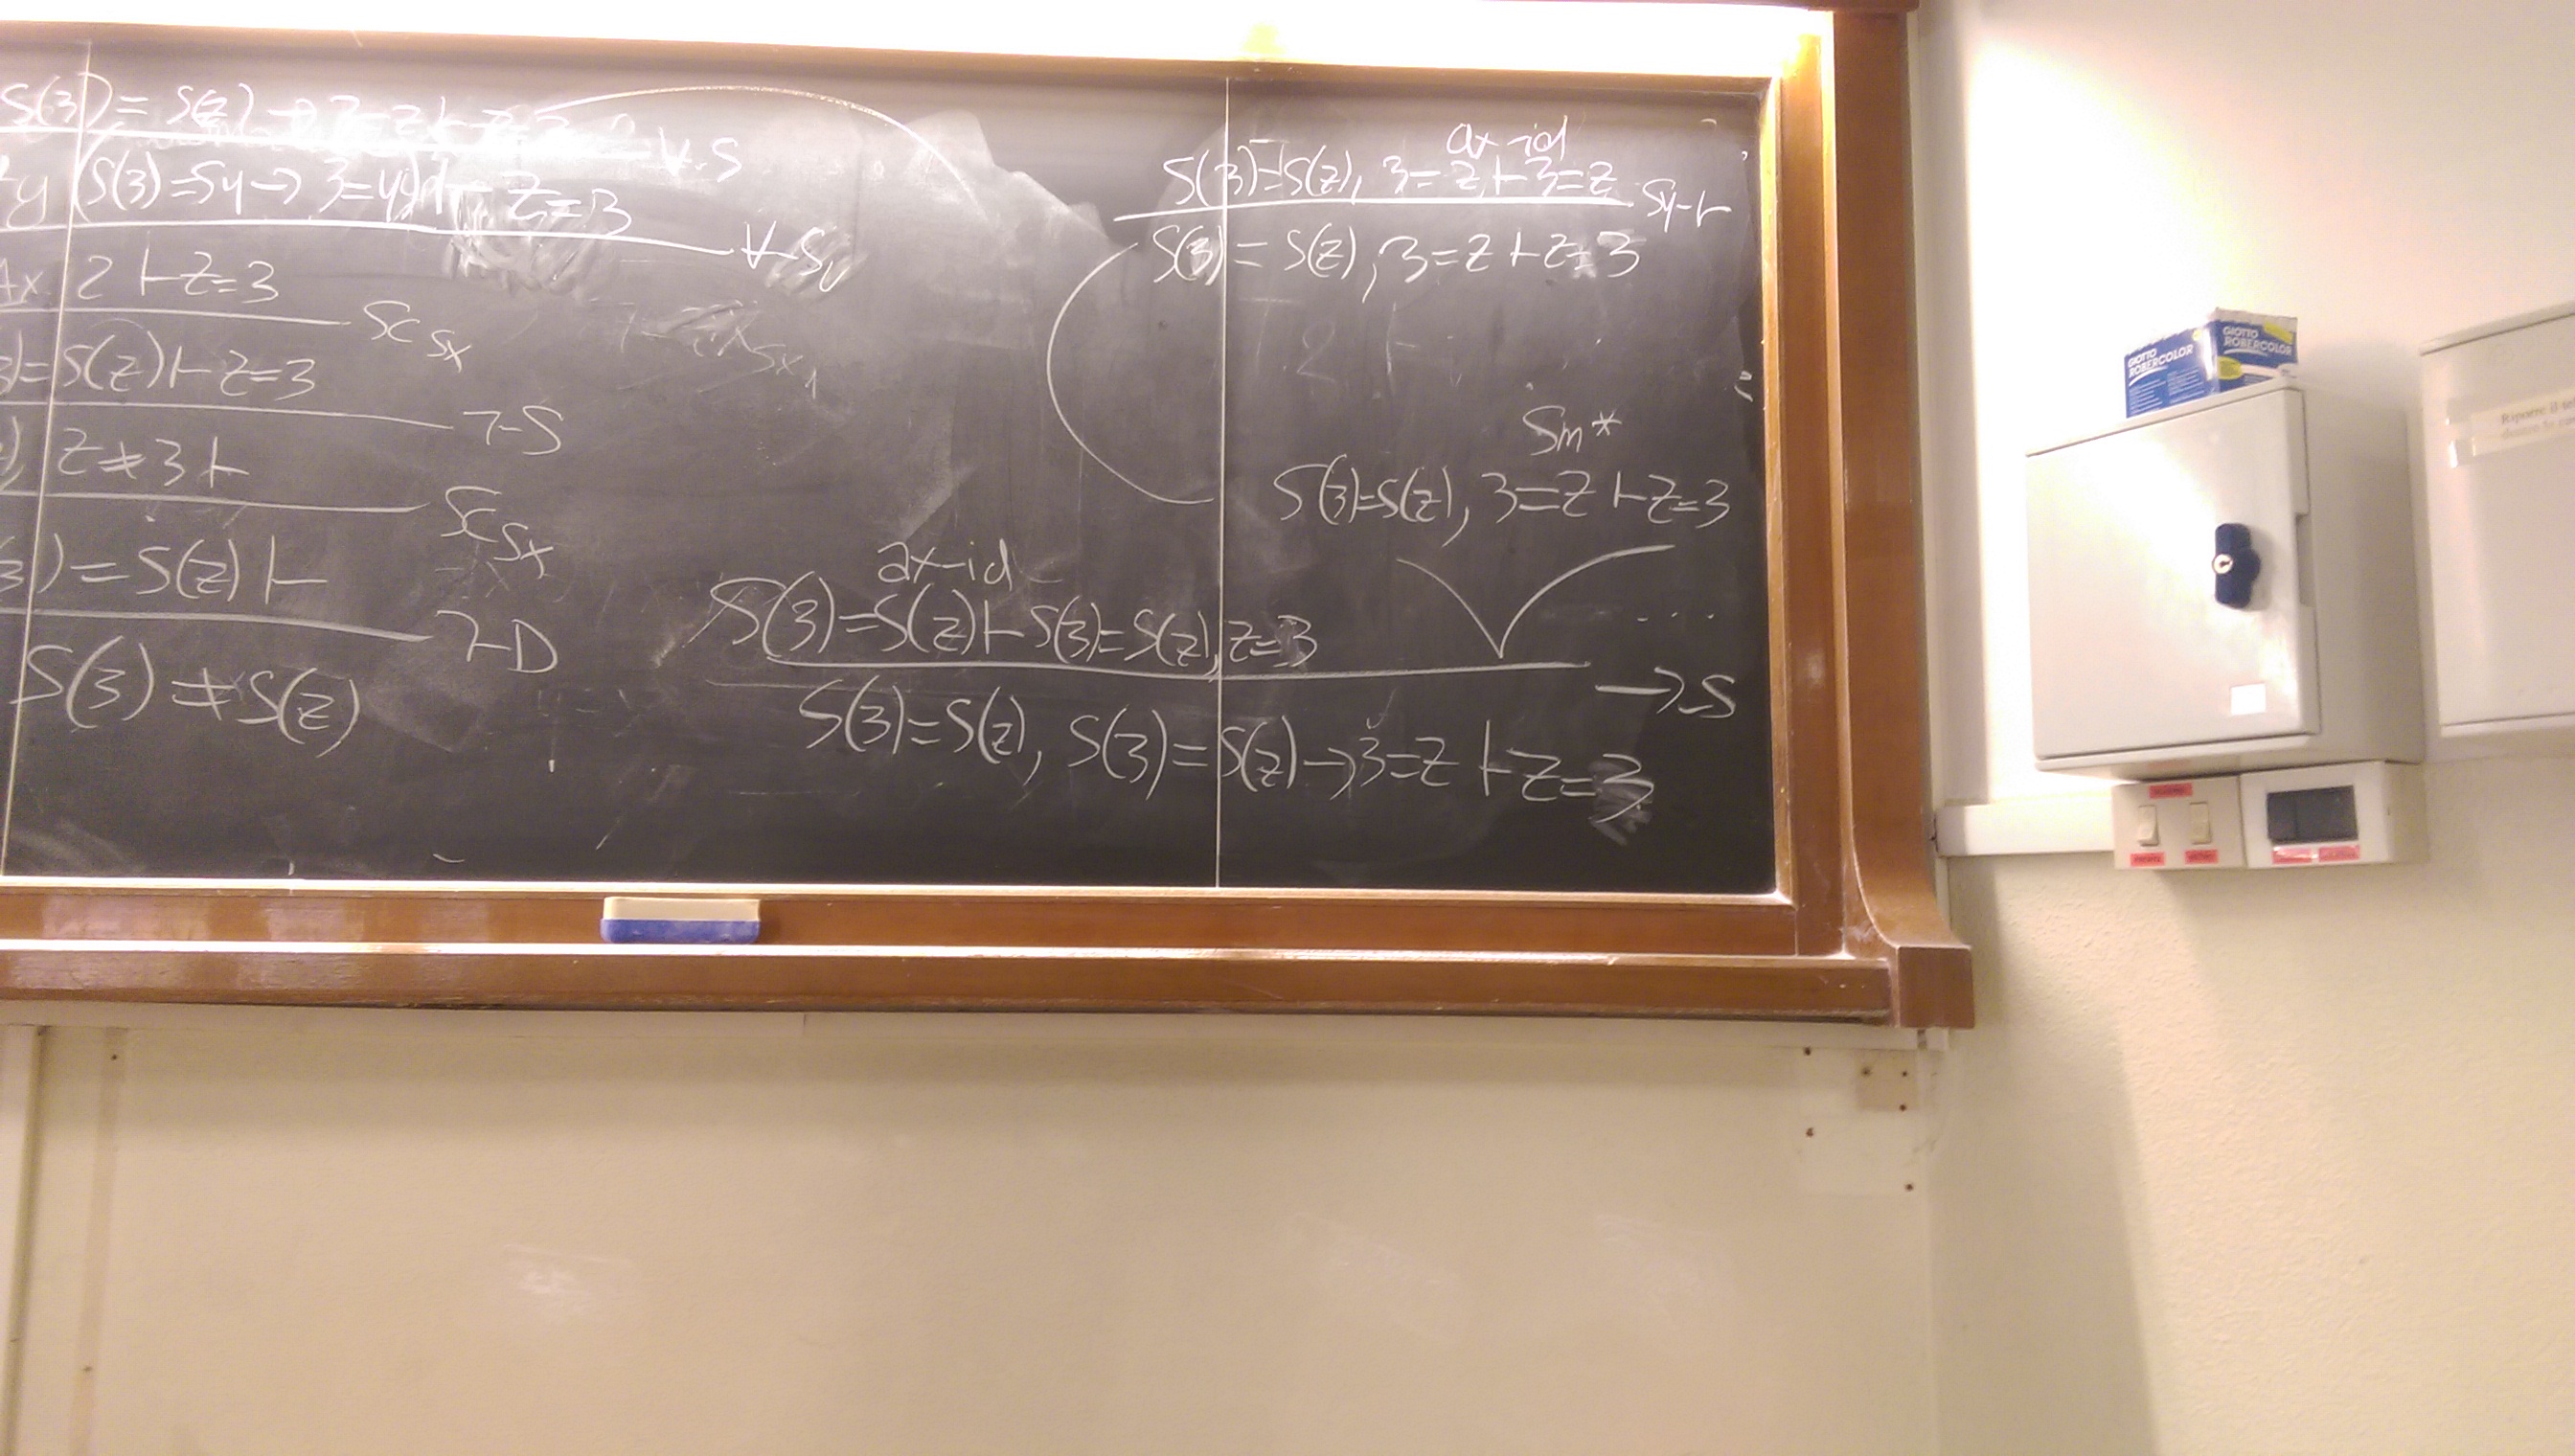 S(3) = S(z) → 3=z ⊢ z=3
∀-S
y (S(3)=Sy → 3=y) ⊢ z=3
∀-S
Ax 2 ⊢ z=3
Sc Sx
3)=S(z) ⊢ z=3
¬-S
z≠3 ⊢
Sc Sx
3)=S(z) ⊢
¬-D
S(3) ≠ S(z)
ax-id
S(3)=S(z), 3=z ⊢ 3=z
Sy-r
S(3) = S(z), 3=z ⊢ z=3
Sm*
S(3)=S(z), 3=z ⊢ z=3
ax-id
S(3)=S(z) ⊢ S(3)=S(z), z=3
...
→-S
S(3)=S(z), S(3)=S(z) → 3=z ⊢ z=3
GIOTTO
ROBERCOLOR
GIOTTO
ROBERCOLOR